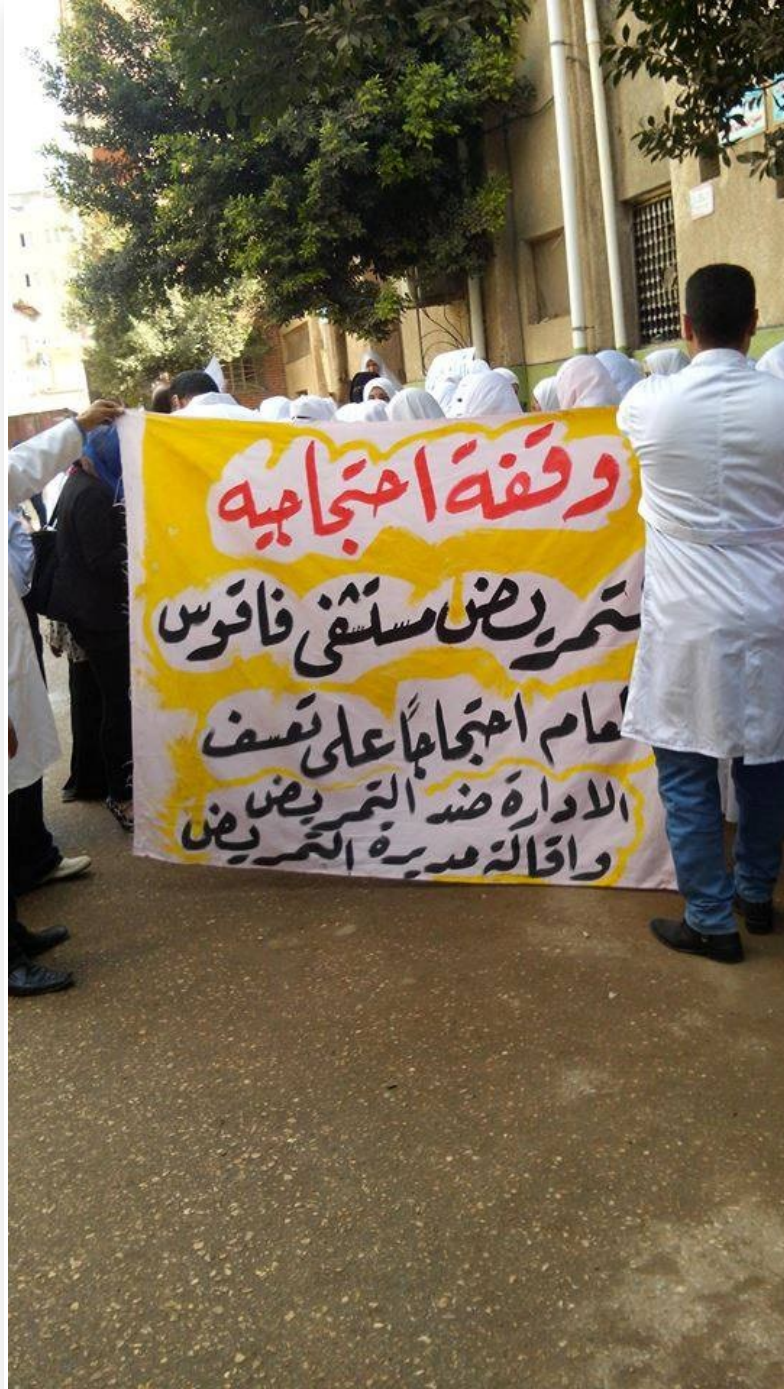 وقفة احتجاجيه
لتمريض مستشفى فاقوس
العام احتجاجاً على تعسف
الادارة ضد التمريض
واقالة مديرة التمريض